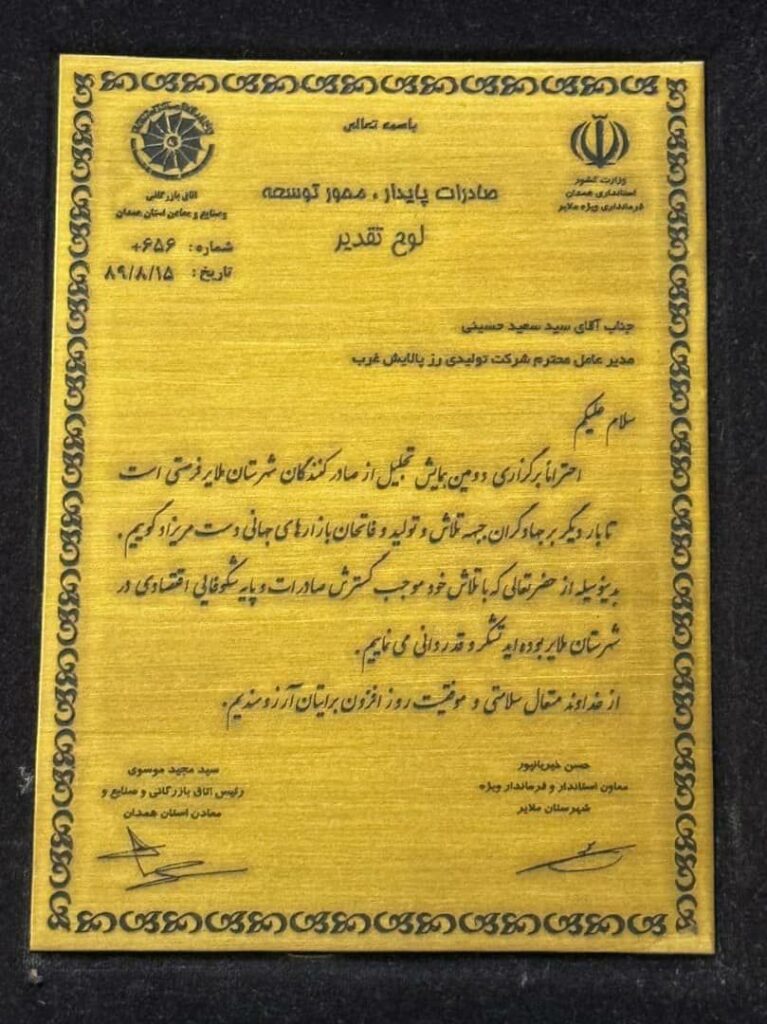 باسمه تعالی
وزارت کشور
استانداری همدان
فرمانداری ویژه ملایر
اتاق بازرگانی
وصنایع و معادن استان همدان
صادرات پایدار ، محور توسعه
لوح تقدیر
شماره : ۶۵۶+
تاریخ : ۸۹/۸/۱۵
جناب آقای سید سعید حسینی
مدیر عامل محترم شرکت تولیدی رز پالایش غرب
سلام علیکم
احتراماً برگزاری دومین همایش تجلیل از صادر کنندگان شهرستان ملایر فرصتی است
تا بار دیگر بر جهادگران جبهه تلاش و تولید و فاتحان بازارهای جهانی دست مریزاد گوییم .
بدینوسیله از حضرتعالی که با تلاش خود موجب گسترش صادرات و پایه شکوفایی اقتصادی در
شهرستان ملایر بوده اید تشکر و قدردانی می نماییم .
از خداوند متعال سلامتی و موفقیت روز افزون برایتان آرزومندیم .
حسن خیریانپور
معاون استاندار و فرماندار ویژه
شهرستان ملایر
سید مجید موسوی
رئیس اتاق بازرگانی و صنایع و
معادن استان همدان